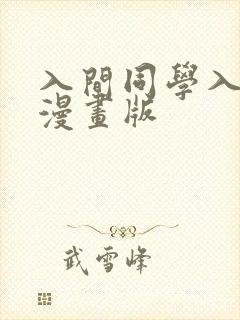 入間同學入
漫畫版
武雪峰